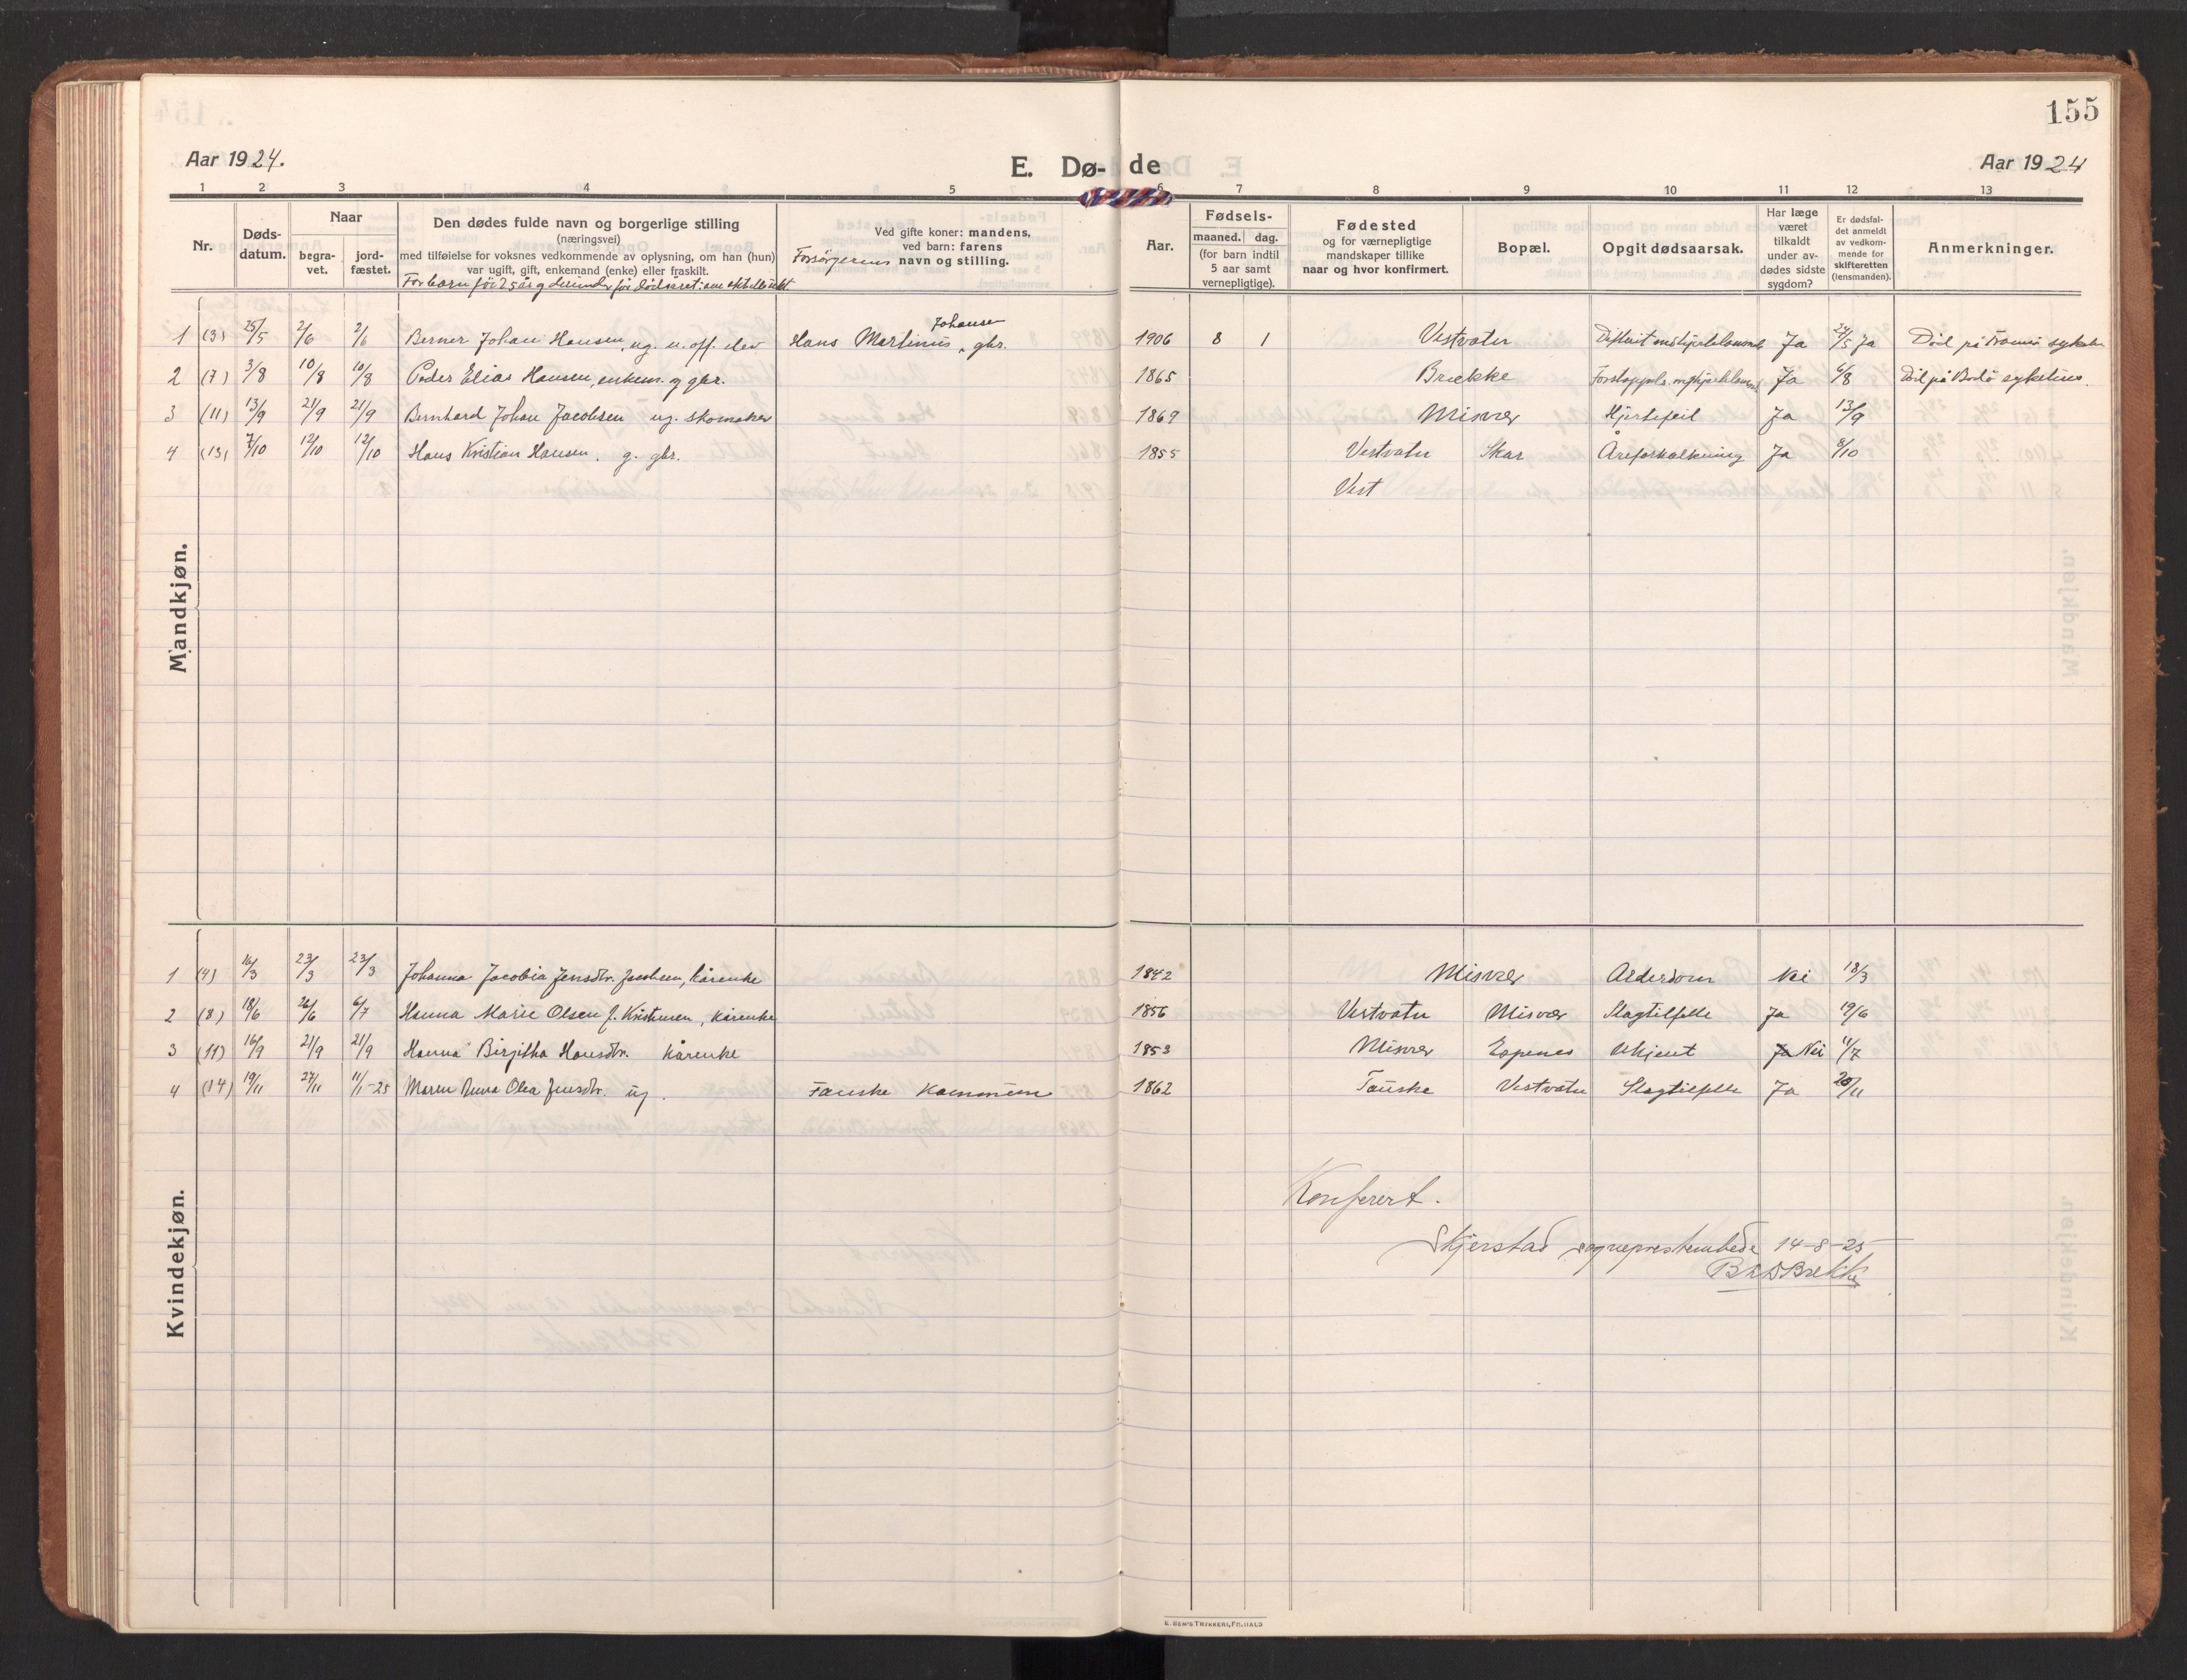 155
Aar 1924.
E. Dø-de
Aar 1924
1 2 3 4 5 6 7 8 9 10 11 12 13
Nr.
Døds-datum.
Naar
begra-vet.
jord-fæstet.
Den dødes fulde navn og borgerlige stilling
(næringsvei)
med tilføielse for voksnes vedkommende av oplysning, om han (hun)
var ugift, gift, enkemand (enke) eller fraskilt.
For barn
Ved gifte koner: mandens,
ved barn: farens
Forsørgerens navn og stilling.
Aar.
Fødsels-
maaned. dag.
(for barn indtil
5 aar samt
vernepligtige).
Fødested
og for værnepligtige
mandskaper tillike
naar og hvor konfirmert.
Bopæl.
Opgit dødsaarsak.
Har læge
været
tilkaldt
under av-
dødes sidste
sygdom?
Er dødsfal-
det anmeldt
av vedkom-
mende for
skifteretten
(lensmanden).
Anmerkninger.
Mandkjøn.
1 (3) 25/5 2/6 2/6 Berner Johan Hansen, ug. u.off. elev Hans Martinus Johansen, gbr. 1906 8 1 Vestvatn Ja 27/5 Ja Død på Tromsø sykehus
2 (7) 3/8 10/8 10/8 Peder Elias Hansen, enkem. og gbr. 1865 Brække Ja 6/8 Død på Bodø sykehus.
3 (11) 13/9 21/9 21/9 Bernhard Johan Jacobsen ug. skomaker 1869 Misvær Hjertefeil Ja 13/9
4 (13) 7/10 12/10 12/10 Hans Kristian Hansen. g. gbr. 1855 Vestvatn Skar Åreforkalkning Ja 8/10
Vest
Kvindekjøn.
1 (4) 16/3 23/3 23/3 Johanna Jacobia Jensdtr. Jacobsen, kårenke 1842 Misvær Alderdom Nei 18/3
2 (8) 18/6 26/6 6/7 Hanna Marie Olsen f. Kristensen, kårenke 1856 Vestvatn Misvær Slagtilfelle Ja 19/6
3 (11) 16/9 21/9 21/9 Hanna Birgitha Hansdtr. kårenke 1853 Misvær Espenes Ukjent Ja Nei 11/7
4 (14) 19/11 27/11 11/1-25 Maren Anna Olea Jensdtr. ug. Fauske Kommune 1862 Fauske Vestvatn Slagtilfelle Ja 20/11
Konferert.
Skjerstad sogneprestembede 14-8-25
Brekke
E. SEM'S TRYKKERI, FR.HALD